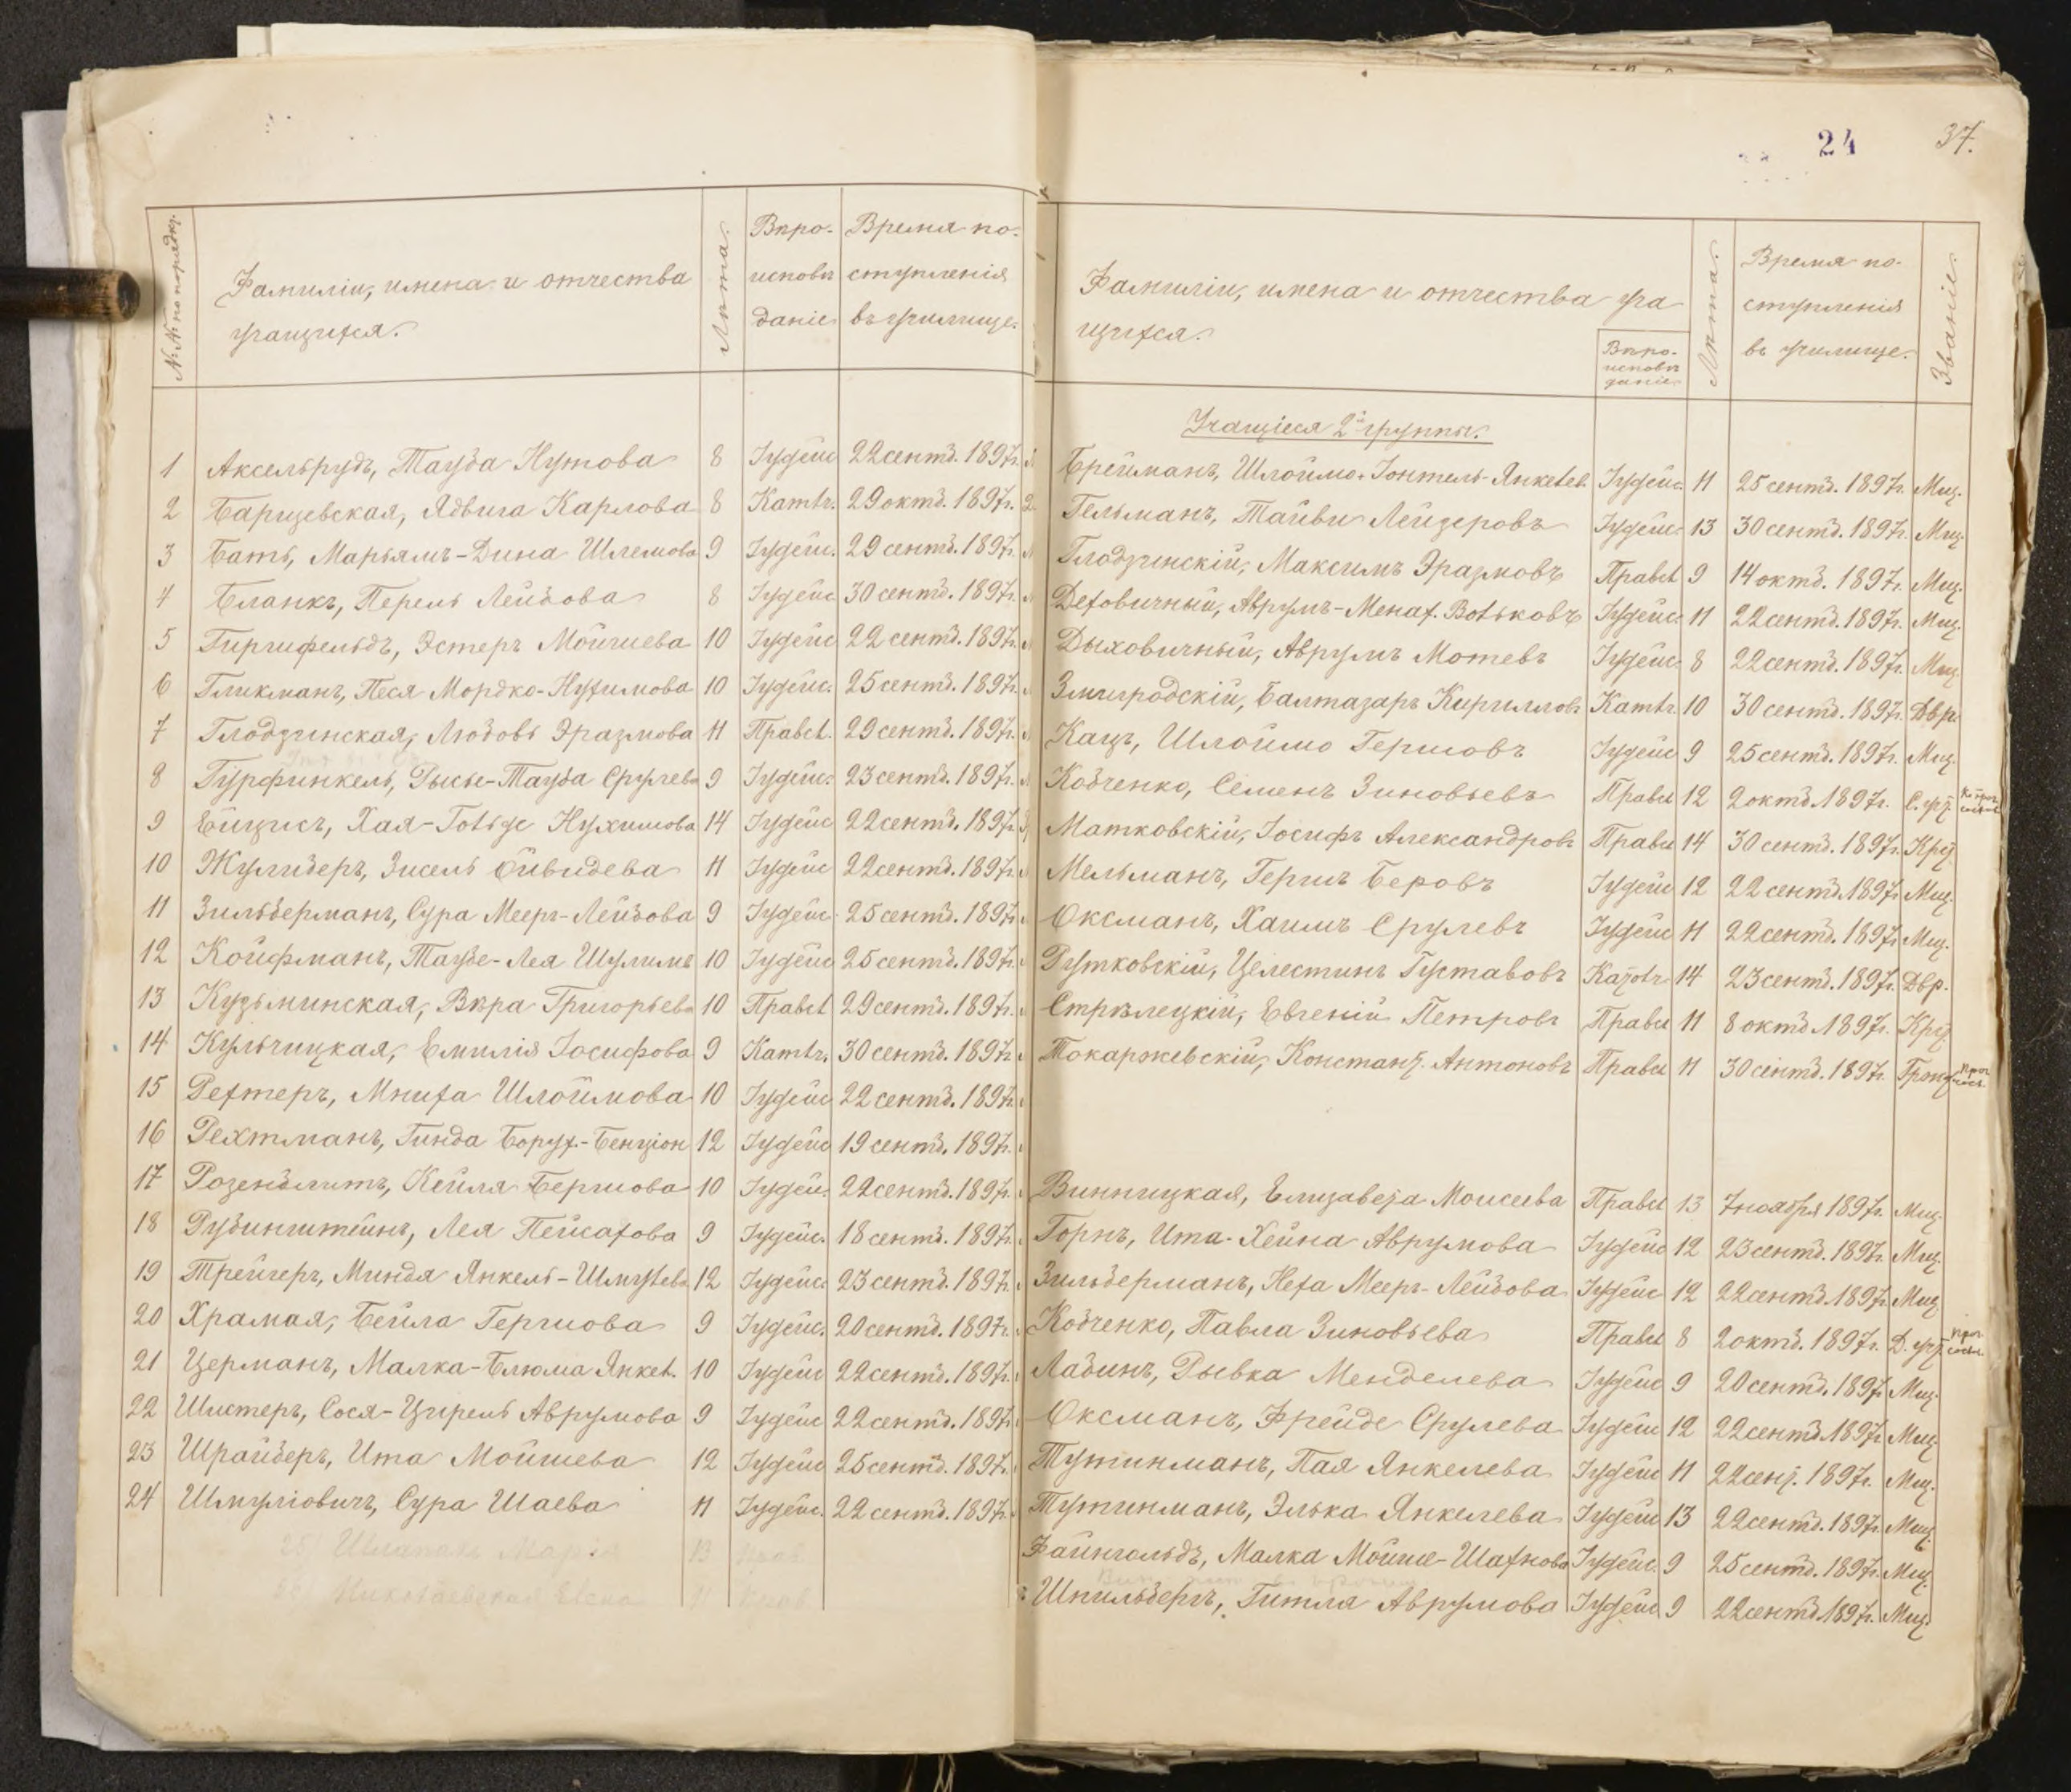 24 37.
№№ по порядку.
Фамиліи, имена и отчества
учащихся.
Лѣта.
Вѣро-
исповѣ
даніе
Время по-
ступленія
въ училище.
1 Аксельрудъ, Тауба Нутова 8 Іудейс 22 сентб. 1897г.
2 Барщевская, Ядвига Карлова 8 Катол. 29 октб. 1897г.
3 Батъ, Марьямъ-Дина Шлемова 9 Іудейс. 29 сентб. 1897г.
4 Бланкъ, Перель Лейбова 8 Іудейс 30 сентб. 1897г.
5 Гиршфельдъ, Эстеръ Мойшева 10 Іудейс 22 сентб. 1897г.
6 Гликманъ, Песя Мордко-Нухимова 10 Іудейс. 25 сентб. 1897г.
7 Глодзинская, Любовь Эразмова 11 Правсл. 29 сентб. 1897г.
8 Гурфинкель, Рысье-Тауба Срулева 9 Іудейс. 23 сентб. 1897г.
9 Ейцисъ, Хая-Гольде Нухимова 14 Іудейс 22 сентб. 1897г.
10 Жулиберъ, Зисель Ойвидева 11 Іудейс 22 сентб. 1897г.
11 Зильберманъ, Сура Меерг-Лейбова 9 Іудейс 25 сентб. 1897г.
12 Койфманъ, Таубе-Лея Шулимв 10 Іудейс 25 сентб. 1897г.
13 Кузьминская, Вѣра Григорьева 10 Правсл 29 сентб. 1897г.
14 Кульчицкая, Емилія Іосифова 9 Катол. 30 сентб. 1897г.
15 Рехтеръ, Мниха Шлоймова 10 Іудейс 22 сентб. 1897г.
16 Рехтманъ, Гинда Борух.-Бенціон 12 Іудейс 19 сентб. 1897г.
17 Розенблитъ, Кейля Бершова 10 Іудейс. 22 сентб. 1897г.
18 Рубинштейнъ, Лея Пейсахова 9 Іудейс. 18 сентб. 1897г.
19 Трейгеръ, Миндя Янкель-Шмулева 12 Іудейс. 23 сентб. 1897г.
20 Храмая, Бейла Гершова 9 Іудейс. 20 сентб. 1897г.
21 Церманъ, Малка-Блюма Янкел. 10 Іудейс 22 сентб. 1897г.
22 Шистеръ, Сося-Ципель Аврумова 9 Іудейс 22 сентб. 1897г.
23 Шрайберъ, Ита Мойшева 12 Іудейс 25 сентб. 1897г.
24 Шмуліовичъ, Сура Шаева 11 Іудейс. 22 сентб. 1897г.
25 Марія 13 Прав
Николаевская Елена 11 Прав
Фамиліи, имена и отчества уча
щихся.
Вѣро-
исповѣ
даніе
Лѣта.
Время по-
ступленія
въ училище.
Званіе.
Учащіеся 2й группы.
Брейманъ, Шлоймо-Іонтель-Янкелев. Іудейс. 11 25 сентб. 1897г. Мщ.
Гельманъ, Тайви Лейзеровъ Іудейс 13 30 сентб. 1897г. Мщ.
Глодзинскій, Максимъ Эразмовъ Правсл 9 14 октб. 1897г. Мщ.
Деховичный, Аврумъ-Менах. Вольковъ Іудейс. 11 22 сентб. 1897г. Мщ.
Дыховичный, Аврумъ Мотевъ Іудейс 8 22 сентб. 1897г. Мщ.
Змигродскій, Балтазаръ Кирилловъ Катол. 10 30 сентб. 1897г. Двр.
Кацъ, Шлоймо Гершовъ Іудейс 9 25 сентб. 1897г. Мщ.
Кобченко, Семенъ Зиновьевъ Правсл 12 2 октб. 1897г.
Матковскій, Іосифъ Александровъ Правсл 14 30 сентб. 1897г. Кр.
Мельманъ, Гершъ Беровъ Іудейс 12 22 сентб. 1897г. Мщ.
Оксманъ, Хаимъ Срулевъ Іудейс 11 22 сентб. 1897г. Мщ.
Рутковскій, Целестинъ Густавовъ Катол. 14 23 сентб. 1897г. Двр.
Стрѣлецкій, Евгеній Петровъ Правсл 11 8 октб. 1897г. Кр.
Токаржевскій, Констант. Антоновъ Правсл 11 30 сентб. 1897г.
Винницкая, Елизавета Моисеева Правсл 13 7 ноября 1897г. Мщ.
Горнъ, Ита-Хейна Аврумова Іудейс 12 23 сентб. 1897г. Мщ.
Зильберманъ, Неха Меерг-Лейбова Іудейс 12 22 сентб. 1897г. Мщ.
Кобченко, Павла Зиновьева Правсл 8 2 октб. 1897г.
Лабинъ, Рывка Менделева Іудейс 9 20 сентб. 1897г. Мщ.
Оксманъ, Фрейде Срулева Іудейс 12 22 сентб. 1897г. Мщ.
Тутинманъ, Пая Янкелева Іудейс 11 22 сент. 1897г. Мщ.
Тутинманъ, Элька Янкелева Іудейс 13 22 сентб. 1897г. Мщ.
Файнгольдъ, Малка Мойше-Шахнова Іудейс. 9 25 сентб. 1897г. Мщ.
Шпильбергъ, Гитля Аврумова Іудейс 9 22 сентб. 1897г. Мщ.